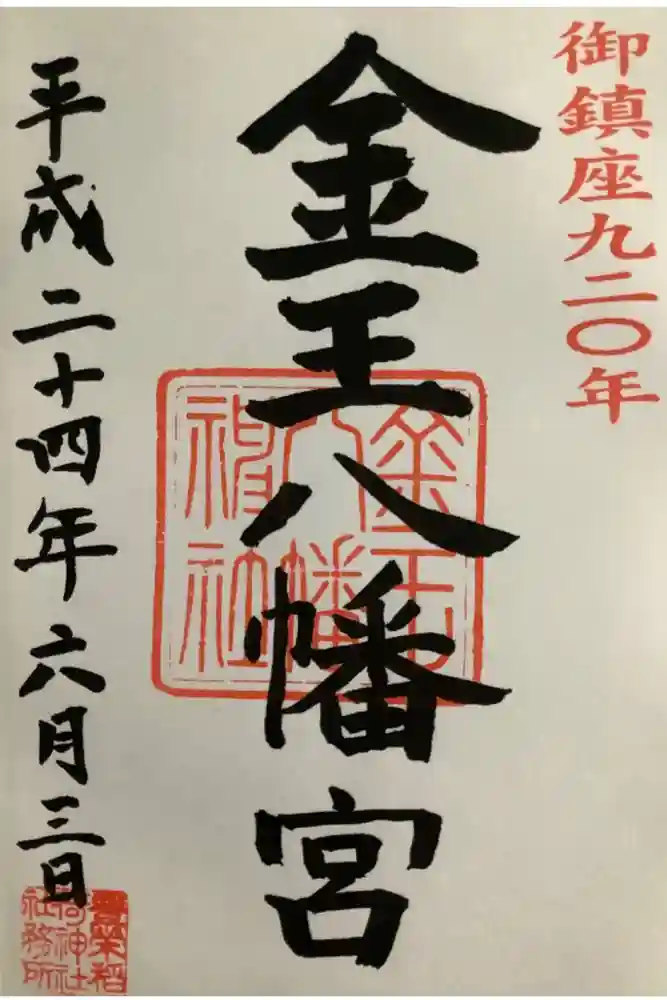 御鎮座九二〇年
金王八幡宮
金王
八幡
神社
平成二十四年六月三日
豊榮稲
荷神社
社務所